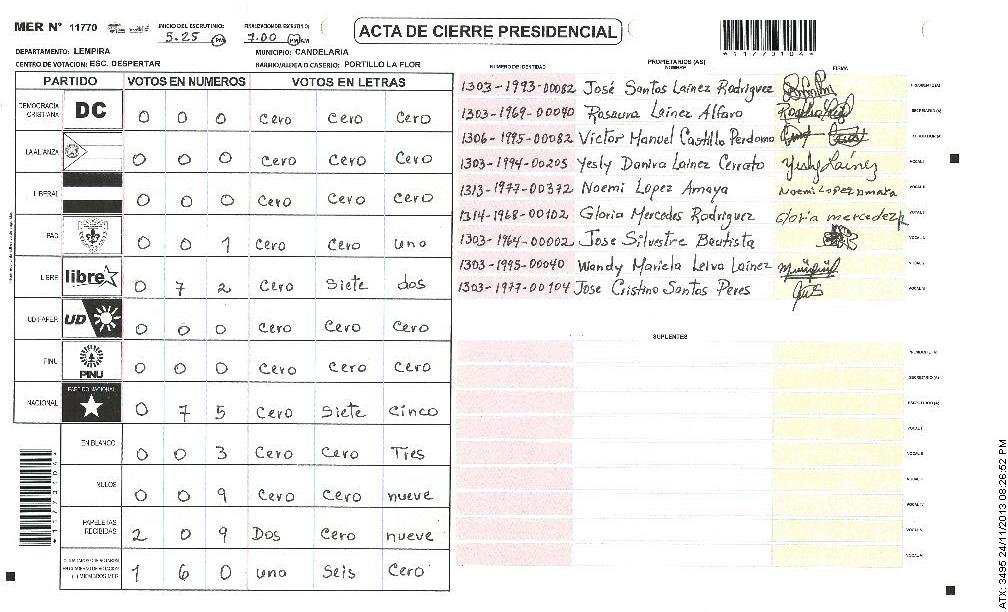 MER N° 11770 INICIO DEL ESCRUTINIO: 5.25 PM FINALIZACION DEL ESCRUTINIO: 7.00 PM AM
ACTA DE CIERRE PRESIDENCIAL
*11773104*
DEPARTAMENTO: LEMPIRA MUNICIPIO: CANDELARIA
CENTRO DE VOTACION: ESC. DESPERTAR BARRIO/ALDEA O CASERIO: PORTILLO LA FLOR
PARTIDO VOTOS EN NUMEROS VOTOS EN LETRAS
DEMOCRACIA CRISTIANA DC 0 0 0 Cero Cero Cero
LA ALIANZA 0 0 0 Cero Cero Cero
LIBERAL 0 0 0 Cero Cero Cero
PAC 0 0 1 Cero Cero uno
LIBRE libre 0 7 2 Cero Siete dos
UD/FAPER UD 0 0 0 Cero Cero Cero
PINU PINU 0 0 0 Cero Cero Cero
NACIONAL PARTIDO NACIONAL 0 7 5 Cero Siete Cinco
EN BLANCO 0 0 3 Cero Cero Tres
NULOS 0 0 9 Cero Cero nueve
PAPELETAS RECIBIDAS 2 0 9 Dos Cero nueve
1 6 0 uno Seis Cero
NUMERO DE IDENTIDAD PROPIETARIOS (AS) NOMBRE FIRMA
1303-1993-00082 José Santos Lainez Rodriguez PRESIDENTE (A)
1303-1969-00040 Rosaura Lainez Alfaro SECRETARIO (A)
1306-1995-00082 Victor Manuel Castillo Perdomo ESCRUTADOR (A)
1303-1994-00205 Yesly Danira Lainez Cerrato Yesly Laínez VOCAL I
1313-1977-00372 Noemi Lopez Amaya Noemi Lopez Amaya VOCAL II
1314-1968-00102 Gloria Mercedes Rodriguez gloria mercedez R VOCAL III
1303-1964-00002 Jose Silvestre Bautista
1303-1995-00040 Wendy Mariela Leiva Lainez
1303-1977-00104 Jose Cristino Santos Peres
SUPLENTES
PRESIDENTE (A)
SECRETARIO (A)
ESCRUTADOR (A)
VOCAL I
VOCAL II
ATX: 3495 24/11/2013 08:26:52 PM